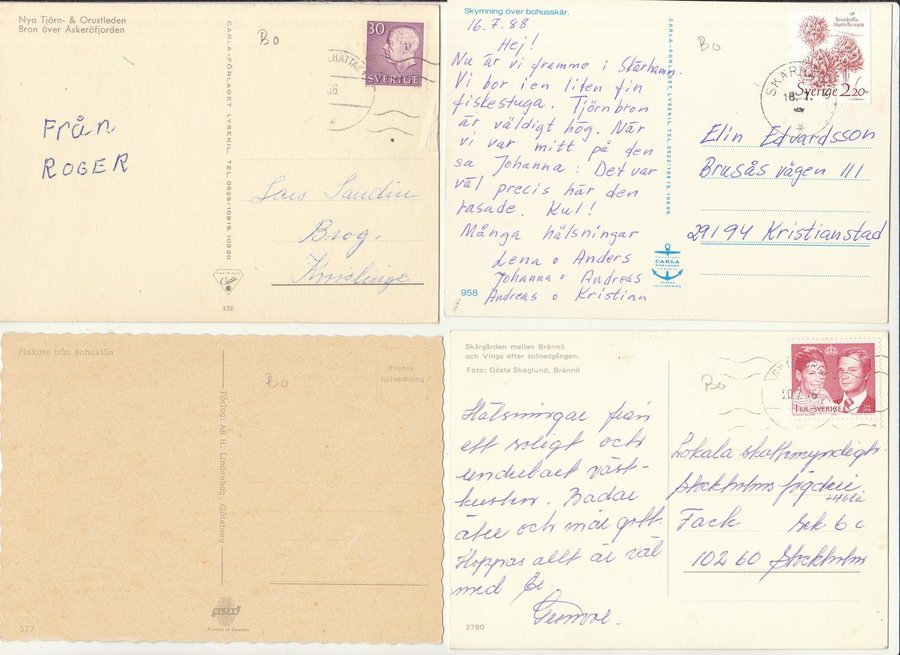 Nya Tjörn- & Orustleden
Bron över Askeröfjorden
Bo
30
SVERIGE
Från
ROGER
CARLA-FÖRLAGET, LYSEKIL TEL. 0523/10919, 10920
Lars Sandin
Brog.
Knislinge
Carla
172
Skymning över bohusskär.
16.7.88
Hej!
Nu är vi framme i Skärhamn.
Vi bor i en liten fin
fiskestuga. Tjörnbron
är väldigt hög. När
vi var mitt på den
sa Johanna: Det var
väl precis här den
rasade. Kul!
Många hälsningar
Lena o Anders
Johanna o Andreas
Andreas o Kristian
958
CARLA-FÖRLAGET, LYSEKIL
CARLA
Bo
Sverige 2.20
18.7.
Elin Edvardsson
Brusås vägen 111
29194 Kristianstad
Fiskare från Bohuslän
Bo
Svensk
tillverkning
Förlag: AB H. Lindenhag, Göteborg
ULTRA
Printed in Sweden
577
Skärgården mellan Brännö
och Vinga efter solnedgången.
Foto: Gösta Skoglund, Brännö
Bo
1 KR SVERIGE
Hälsningar från
ett soligt och
underbart väst-
kusten. Badar
äter och mår gott.
Hoppas allt är väl
med Er.
2790
Lokala skattmyndigh.
Stockholms fögderi
Fack Sek 6 c
102 60 Stockholm